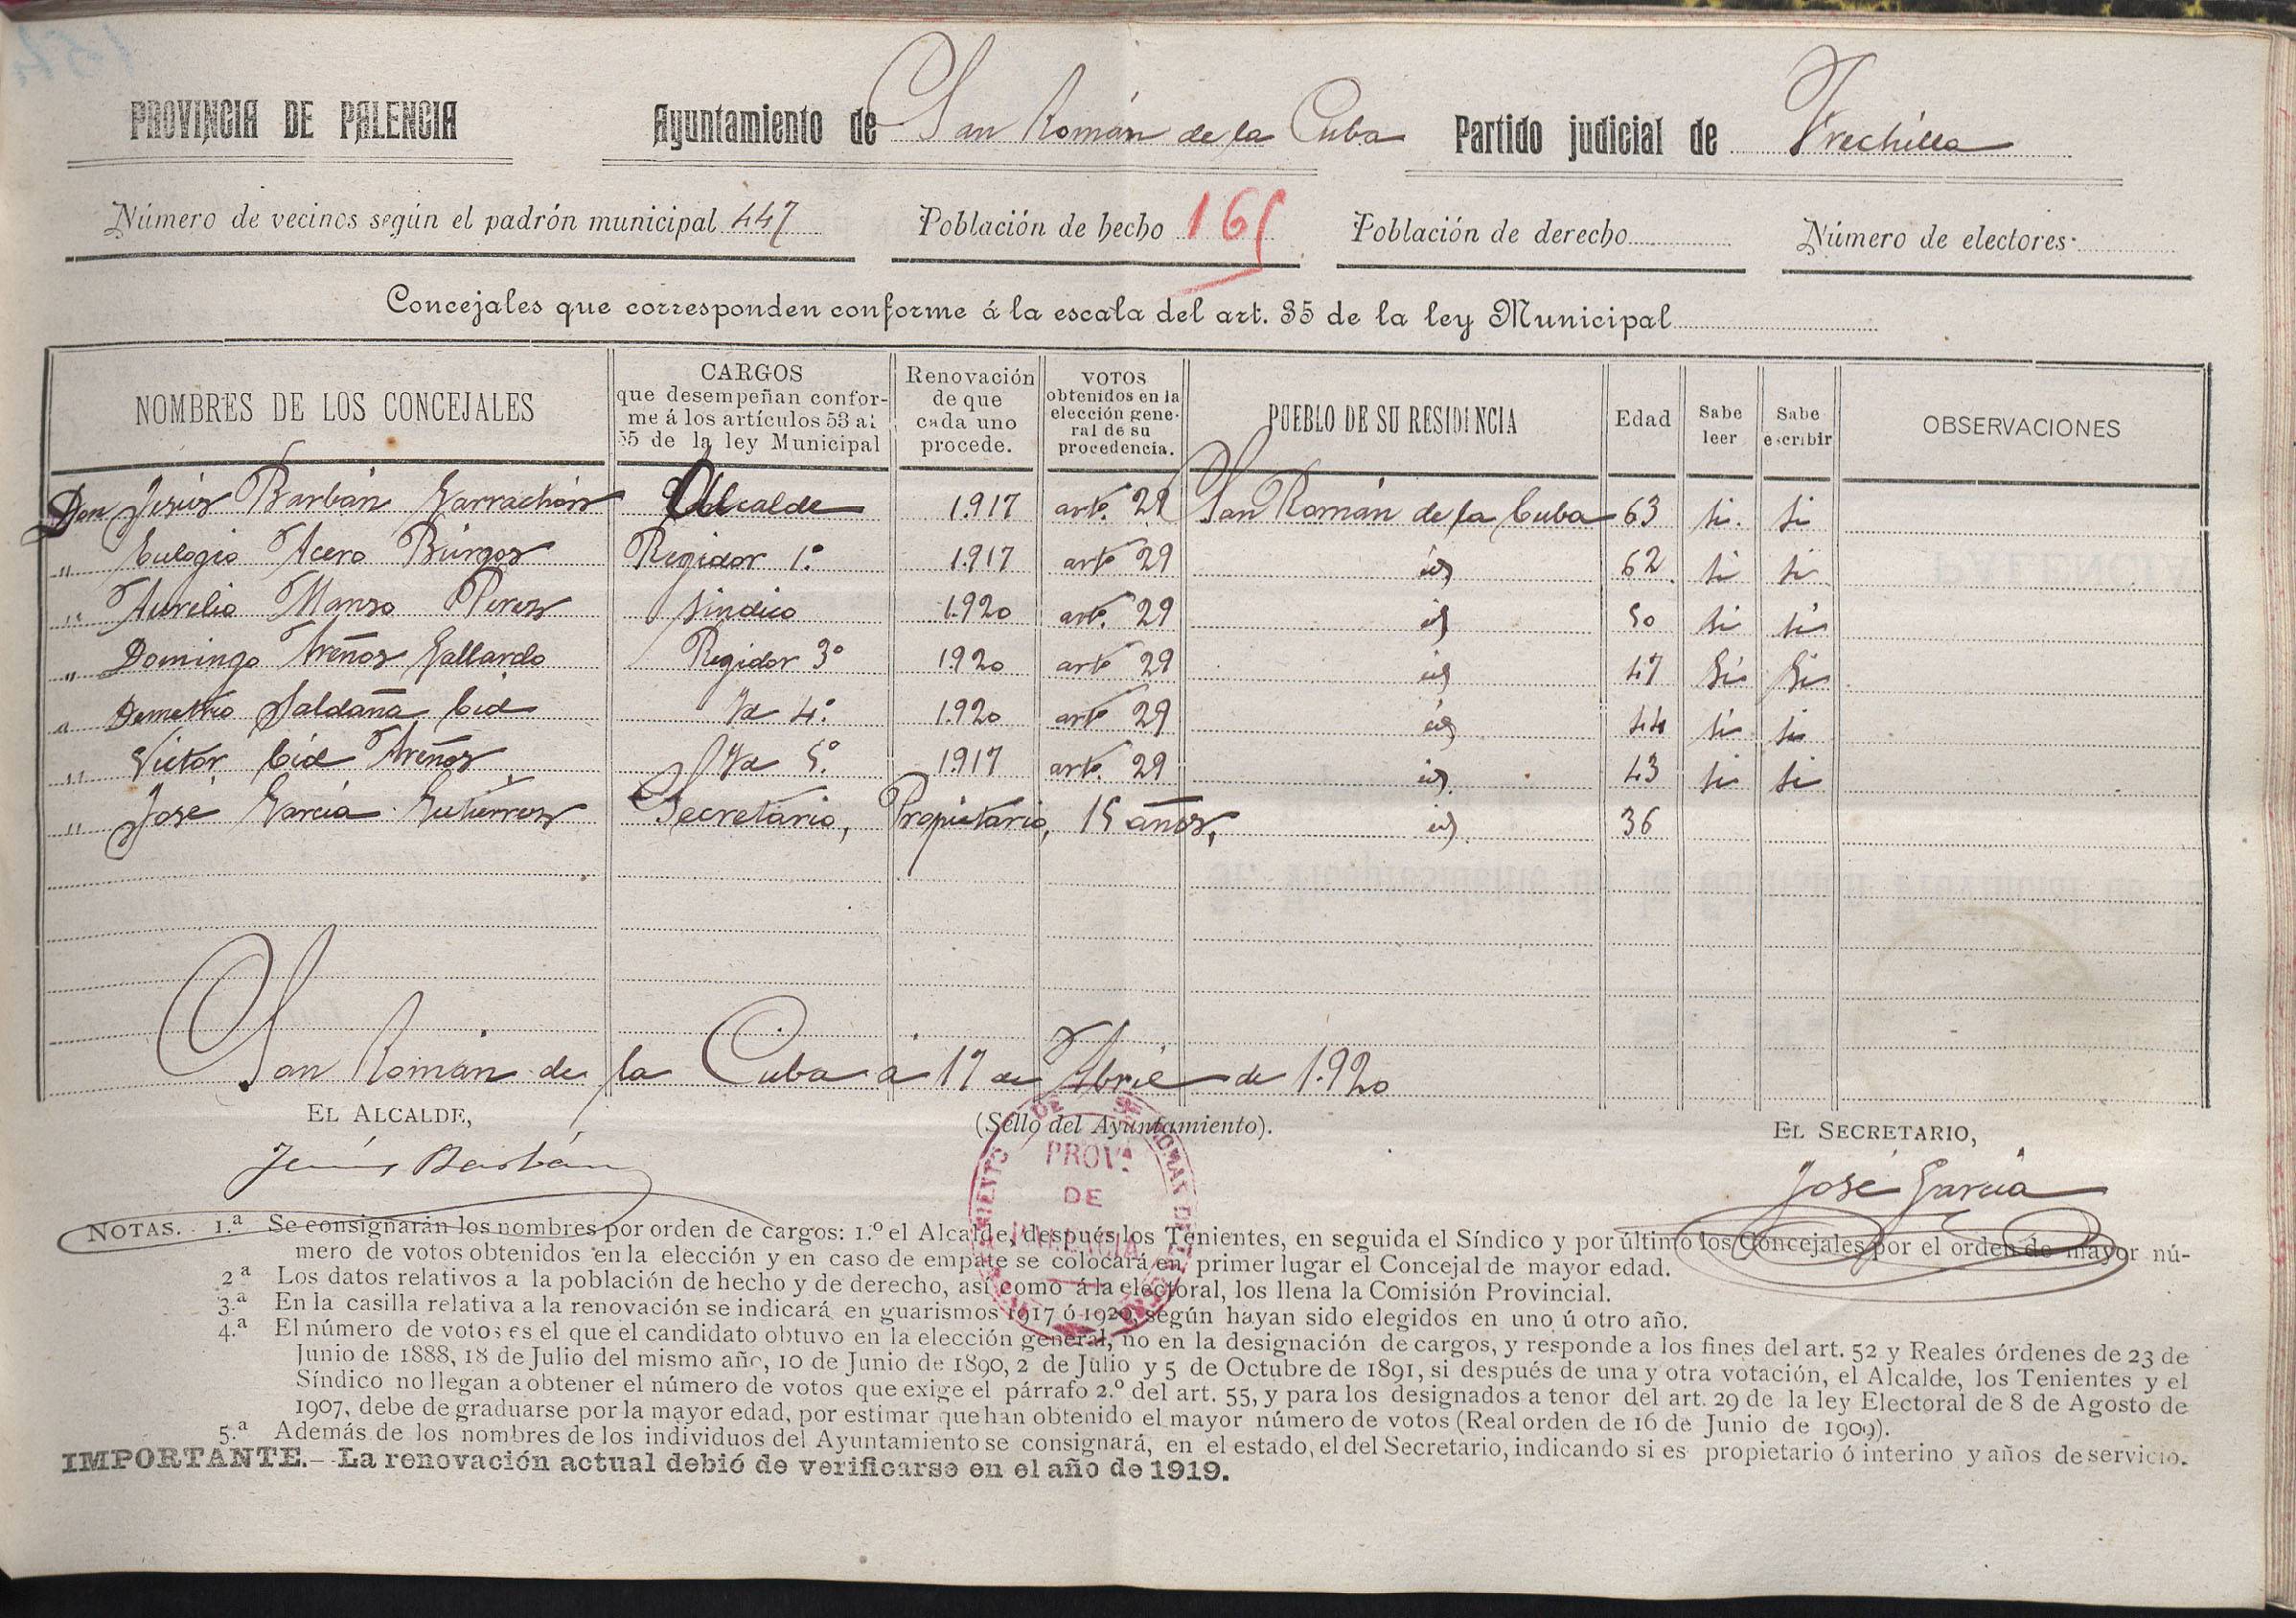 PROVINCIA DE PALENCIA Ayuntamiento de San Román de la Cuba Partido judicial de Frechilla
Número de vecinos según el padrón municipal 447 Población de hecho 165 Población de derecho Número de electores
Concejales que corresponden conforme á la escala del art. 35 de la ley Municipal
NOMBRES DE LOS CONCEJALES
CARGOS
que desempeñan confor-
me á los artículos 53 al
55 de la ley Municipal
Renovación
de que
cada uno
procede.
VOTOS
obtenidos en la
elección gene-
ral de su
procedencia.
PUEBLO DE SU RESIDENCIA
Edad
Sabe
leer
Sabe
escribir
OBSERVACIONES
Don Jesús Barbán Garrachón Alcalde 1.917 arto. 29 San Román de la Cuba 63 si. si
" Eulogio Acero Búrgos Regidor 1.º 1.917 arto 29 id 62 si si
" Aurelio Manso Perez Sindico 1.920 arto. 29 id 50 si si
" Domingo Areños Gallardo Regidor 3º 1.920 arto 29 id 47 Si Si
" Demetrio Saldaña Cid Id 4.º 1.920 arto 29 id 44 si si
" Victor Cid Areños Id 5.º 1.917 arto. 29 id. 43 si si
" José García Gutiérrez Secretario, Propietario, 15 años, id. 36
San Román de la Cuba a 17 de Abril de 1.920
EL ALCALDE, (Sello del Ayuntamiento). EL SECRETARIO,
Jesús Barbán José García
PROVA
DE
PALENCIA
NOTAS. 1.ª Se consignarán los nombres por orden de cargos: 1.º el Alcalde, después los Tenientes, en seguida el Síndico y por último los Concejales por el orden de mayor nú-
mero de votos obtenidos en la elección y en caso de empate se colocará en primer lugar el Concejal de mayor edad.
2ª Los datos relativos a la población de hecho y de derecho, así como á la electoral, los llena la Comisión Provincial.
3.ª En la casilla relativa a la renovación se indicará en guarismos 1917 ó 1920, según hayan sido elegidos en uno ú otro año.
4.ª El número de votos es el que el candidato obtuvo en la elección general, no en la designación de cargos, y responde a los fines del art. 52 y Reales órdenes de 23 de
Junio de 1888, 18 de Julio del mismo año, 10 de Junio de 1890, 2 de Julio y 5 de Octubre de 1891, si después de una y otra votación, el Alcalde, los Tenientes y el
Síndico no llegan a obtener el número de votos que exige el párrafo 2.º del art. 55, y para los designados a tenor del art. 29 de la ley Electoral de 8 de Agosto de
1907, debe de graduarse por la mayor edad, por estimar que han obtenido el mayor número de votos (Real orden de 16 de Junio de 1909).
5.ª Además de los nombres de los individuos del Ayuntamiento se consignará, en el estado, el del Secretario, indicando si es propietario ó interino y años de servicio.
IMPORTANTE.—La renovación actual debió de verificarse en el año de 1919.